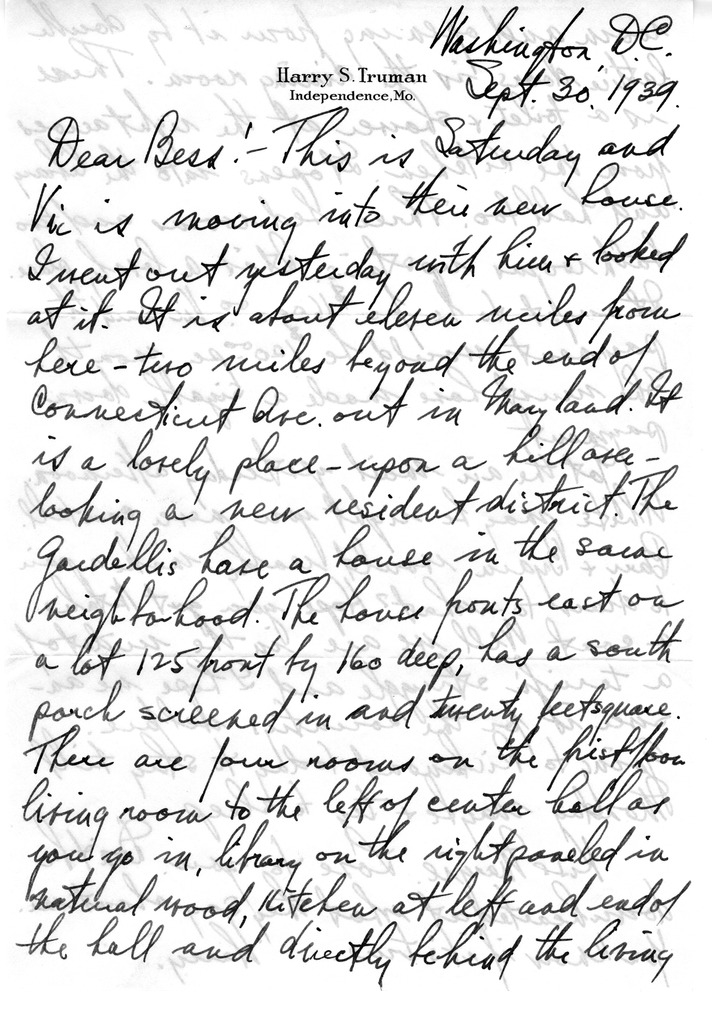 Washington, D.C.
Harry S. Truman
Independence, Mo.
Sept. 30, 1939.
Dear Bess:- This is Saturday and
Vic is moving into their new house.
I went out yesterday with him & looked
at it. It is about eleven miles from
here - two miles beyond the end of
Connecticut Ave. out in Maryland. It
is a lovely place - up on a hill over-
looking a new resident district. The
Gardellis have a house in the same
neighborhood. The house fronts east on
a lot 125 front by 160 deep, has a south
porch screened in and twenty feet square.
There are four rooms on the first floor
living room to the left of center hall as
you go in, library on the right paneled in
natural wood, kitchen at left and end of
the hall and directly behind the living